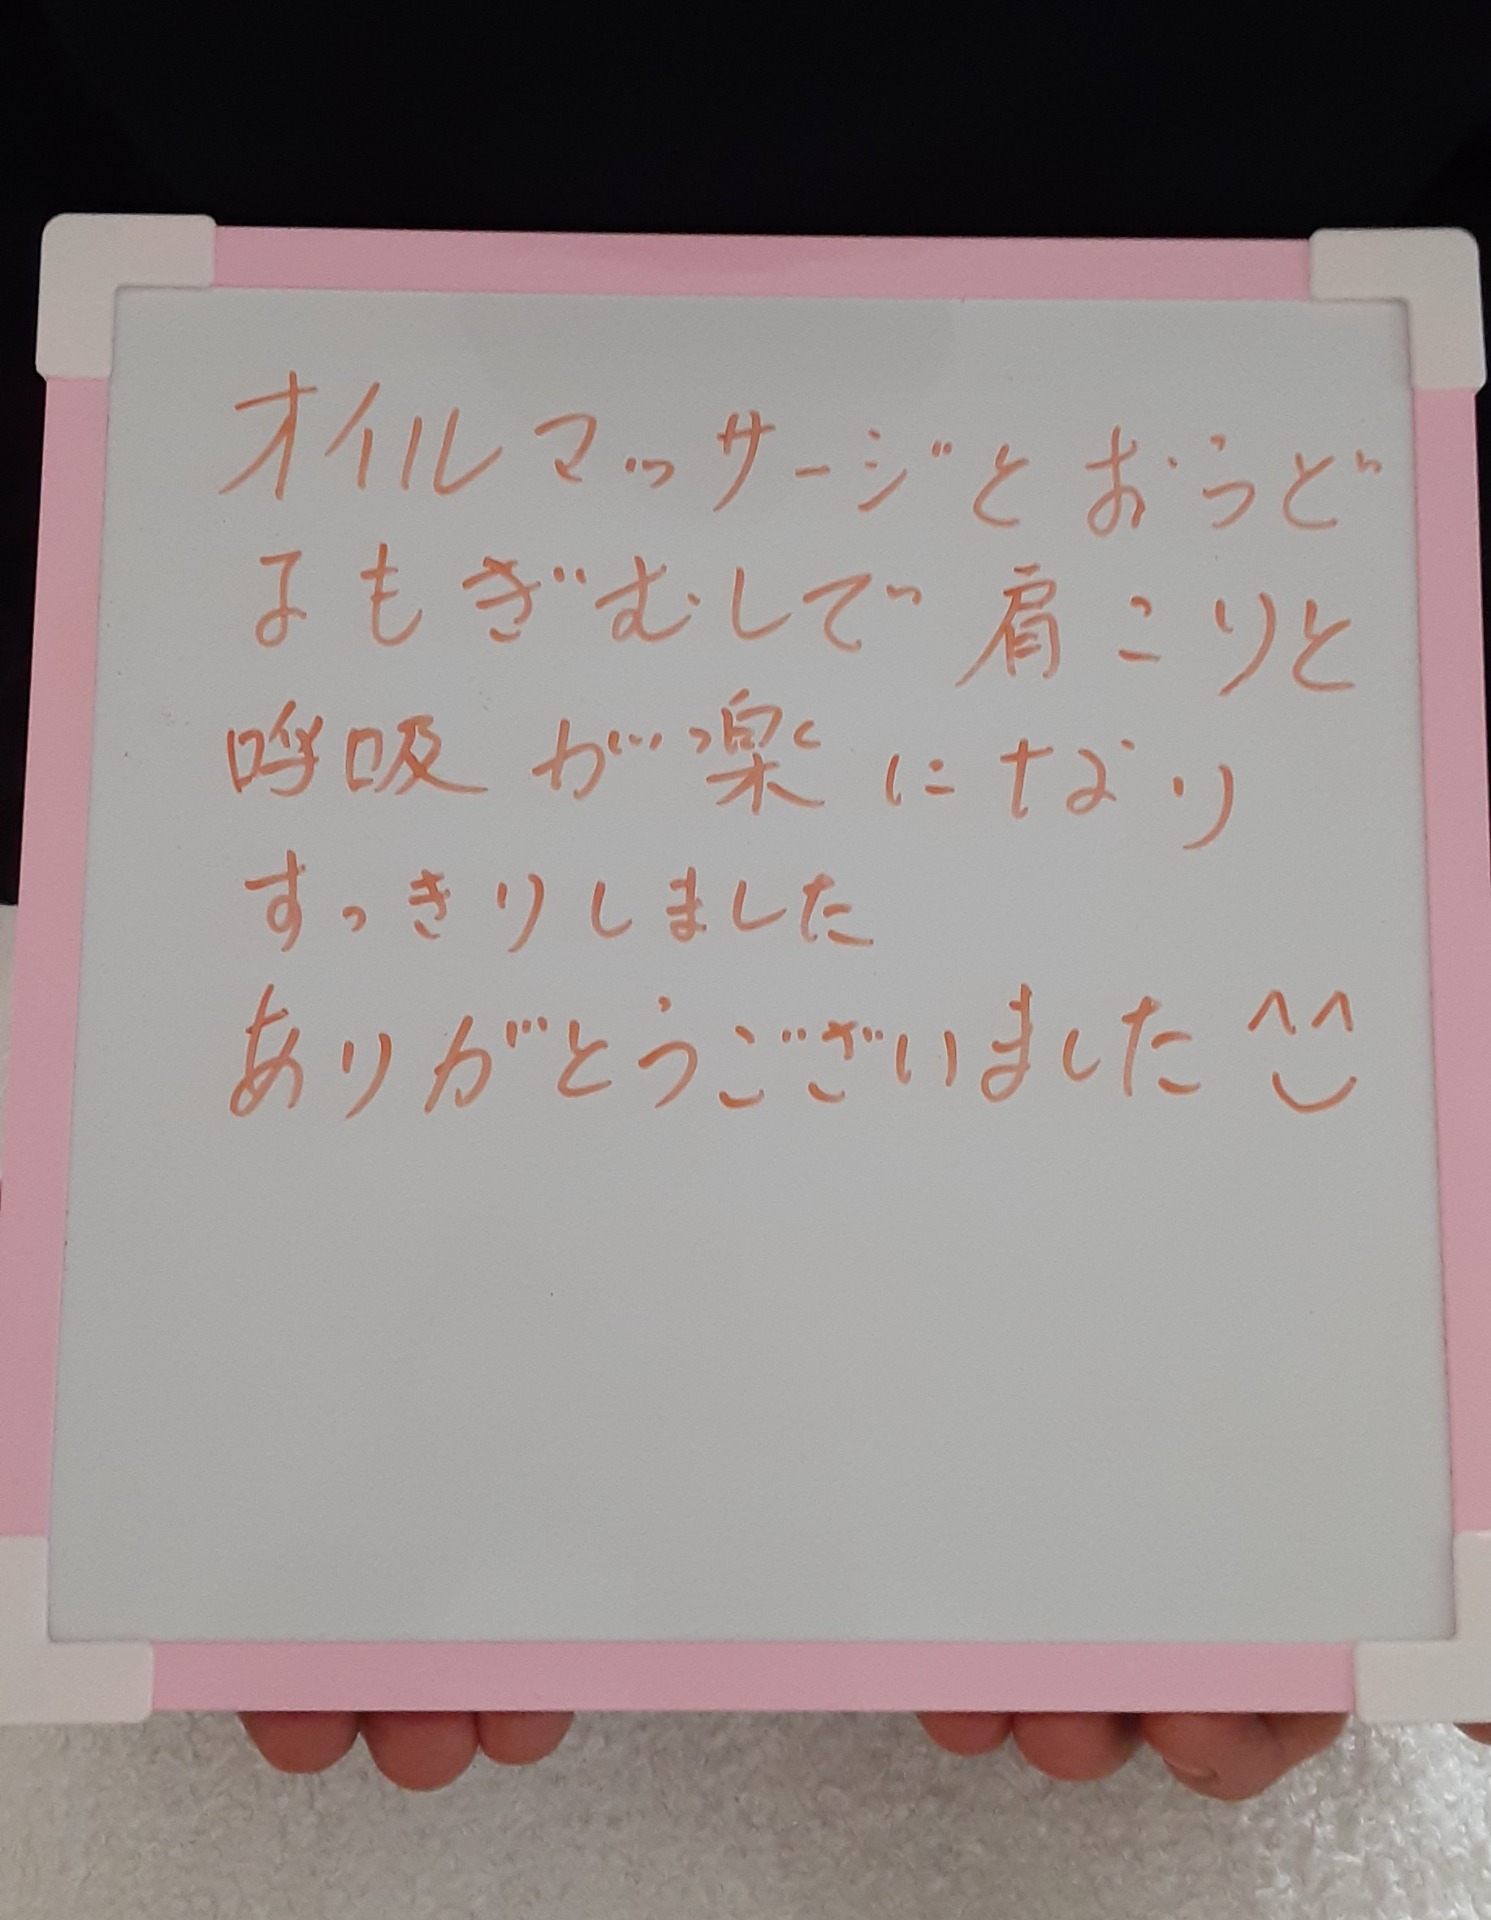 オイルマッサージとおうど
よもぎむしで肩こりと
呼吸が楽になり
すっきりしました
ありがとうございました^^